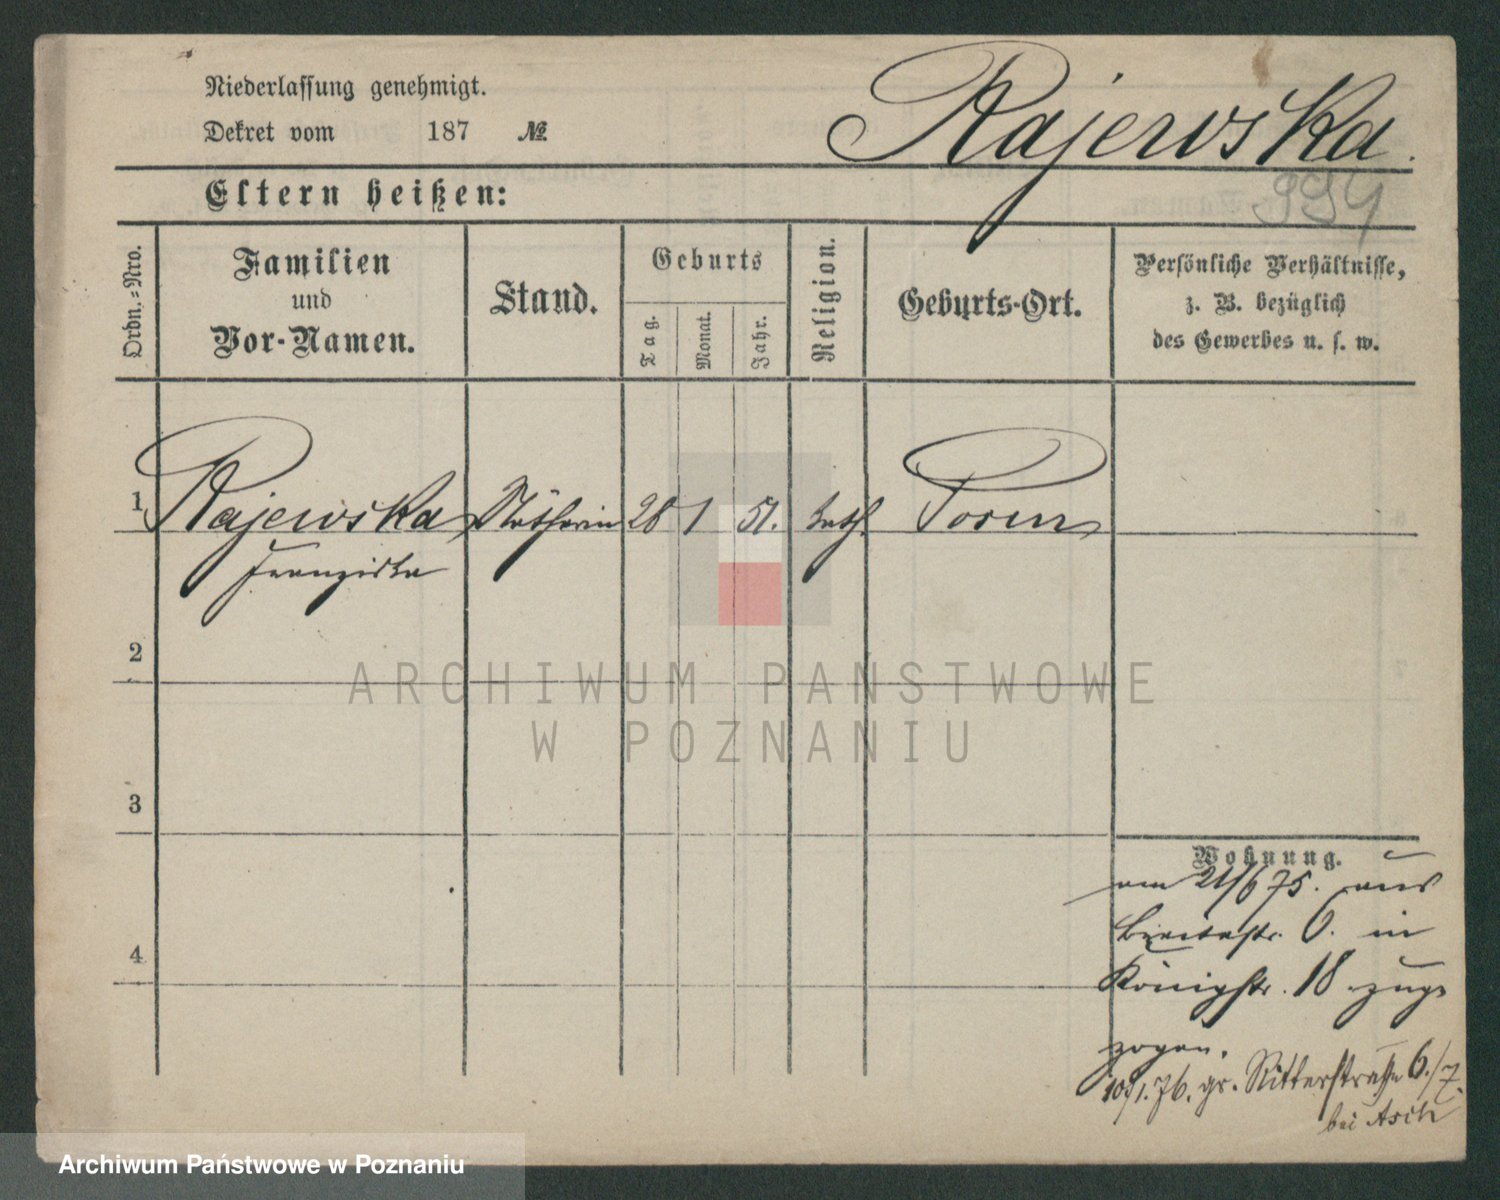 Niederlassung genehmigt.
Dekret vom 187 №
Rajewska.
994
Eltern heißen:
Ordn.-Nro.
Familien
und
Vor-Namen.
Stand.
Geburts
Tag.
Monat.
Jahr.
Religion.
Geburts-Ort.
Persönliche Verhältnisse,
z. B. bezüglich
des Gewerbes u. s. w.
1 Rajewska Nätherin 28 1 51. kath. Posen
Franziska
2
ARCHIWUM PAŃSTWOWE
W POZNANIU
3
Wohnung.
am 21/6 75. aus
Breitestr. 6. in
4
Königstr. 18 zuge
zogen.
10/1. 76. gr. Ritterstraße 6./7.
bei Asch
Archiwum Państwowe w Poznaniu